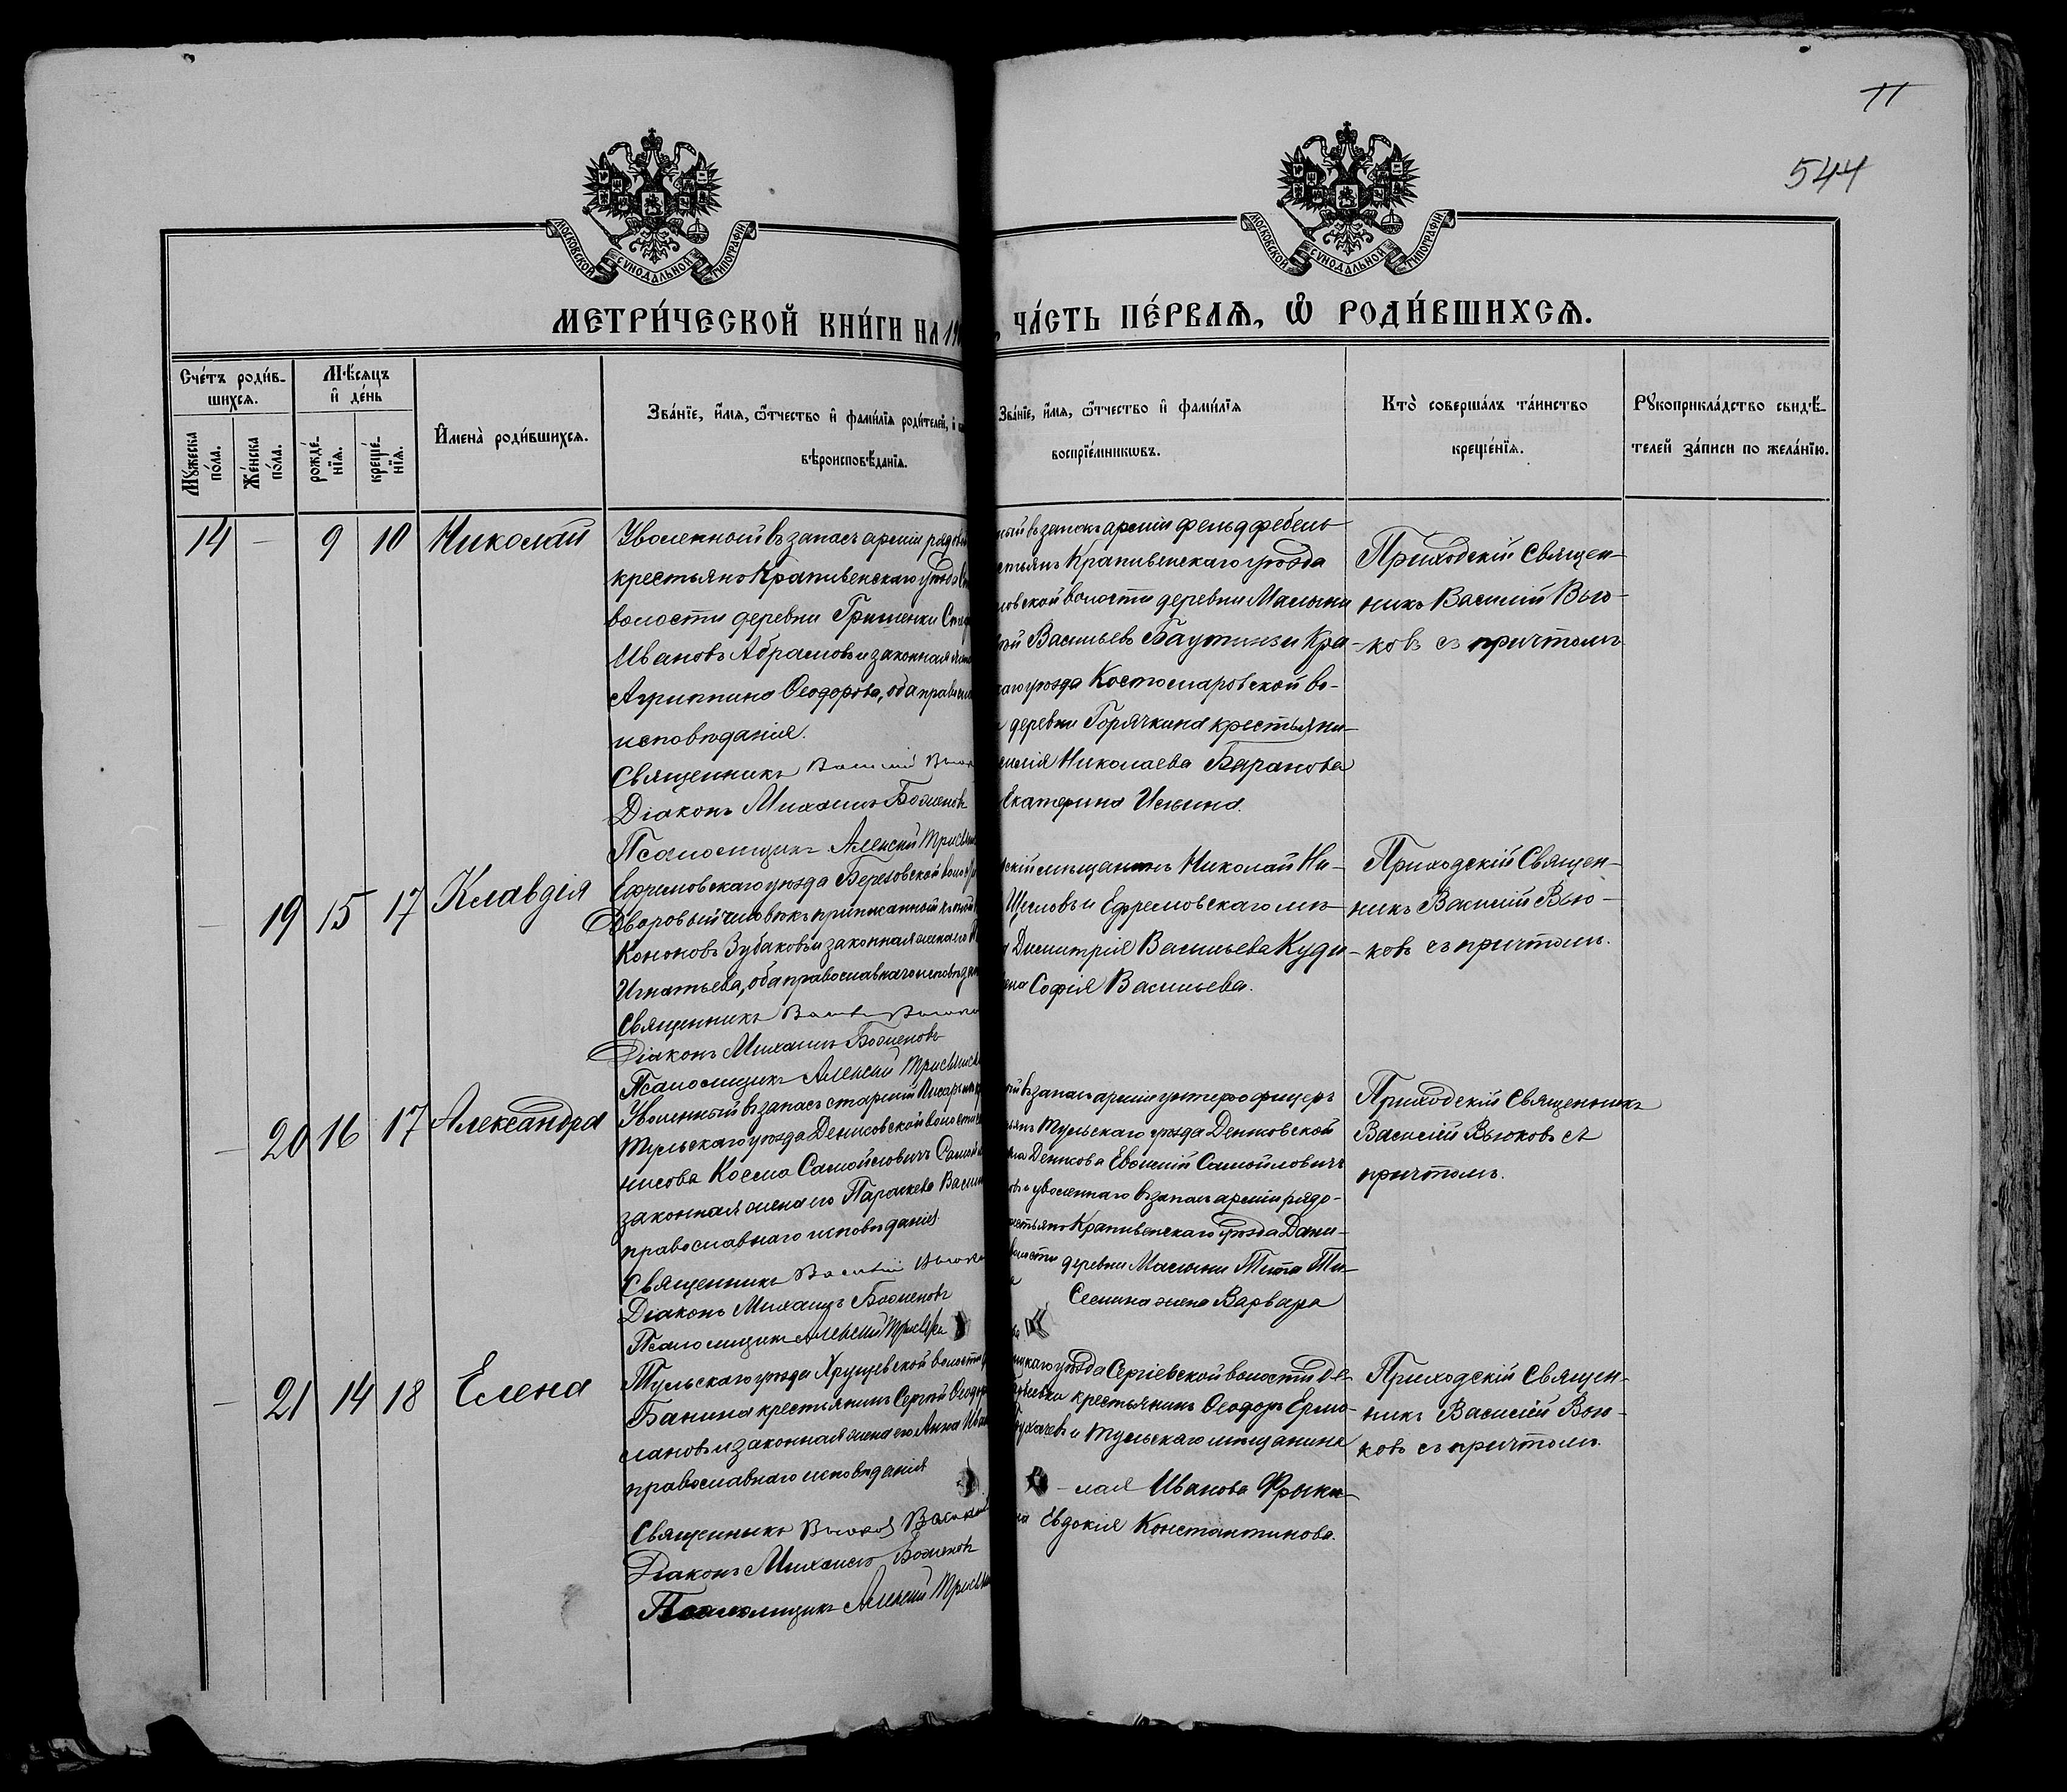 11
544
МОСКОВСКОЙ СѴНОДАЛЬНОЙ ТИПОГРАФІИ
МОСКОВСКОЙ СѴНОДАЛЬНОЙ ТИПОГРАФІИ
МЕТРИ́ЧЕСКОЙ КНИ́ГИ НА 19
, ЧА́СТЬ ПЕ́РВАѦ, Ѽ РОДИ́ВШИХСѦ.
Сче́тъ роди́в-
шихся.
Мѣ́сяцъ
и҆ де́нь
Му́жеска
по́ла.
Же́нска
по́ла.
рожде́-
нїя.
креще́-
нїя.
И҆мена̀ роди́вшихся.
Зва́нїе, и҆́мя, ѻ҆́тчество и҆ фами́лїя роди́телей, и҆
вѣроисповѣ́данїя.
Зва́нїе, и҆́мя, ѻ҆́тчество и҆ фами́лїя
воспрїе́мникѡвъ.
Кто̀ соверша́лъ та́инство
креще́нїя.
Рꙋкоприкла́дство свидѣ́-
телей за́писи по жела́нїю.
14 - 9 10 Николай
Уволенной въ запасъ арміи рядов
крестьянъ Крапивенскаго уѣзда
волости деревни Гришенки
Ивановъ Абрамовъ и законная
Агриппина Ѳеодорова, оба правосл
исповѣданія.
Священникъ Василій Вьюк
Діаконъ Михаилъ Боженовъ
Псаломщикъ Алексѣй
ный въ запасъ арміи фельдфебель
стьянъ Крапивенскаго уѣзда
ловской волости деревни Малыни
Васильевъ Баутинъ и Кра-
каго уѣзда Костомаровской во-
деревни Горячкина крестьяни-
силія Николаева Баранова
Екатерина Ильина.
Приходскій Священ-
никъ Василій Вью-
ковъ съ причтомъ
- 19 15 17 Клавдія
Ефремовскаго уѣзда Березовской воло
Дворовый человѣкъ приписанной къ
Кононовъ Зубаковъ и законная жена его
Игнатьева, оба православнаго исповѣдан
Священникъ
Діаконъ Михаилъ Боженовъ
Псаломщикъ Алексѣй
скій мѣщанинъ Николай Ни-
Щегловъ и Ефремовскаго мѣ-
Димитрія Васильева Куди-
ена Софія Васильева.
Приходскій Священ-
никъ Василій Вью-
ковъ съ причтомъ.
- 20 16 17 Александра
Уволенный въ запасъ старшій писарь
Тульскаго уѣзда Денисовской волости
нисова Косма Самойловичъ Самой
законная жена его Параскева Васил
православнаго исповѣданія.
Священникъ Василій Вьюк
Діаконъ Михаилъ Боженовъ
Псаломщикъ Алексѣй
ый въ запасъ арміи унтеръ офицеръ
ьянъ Тульскаго уѣзда Денисовской
Денисова Евфимій Самойловичъ
овъ и уволеннаго въ запасъ арміи рядо-
рестьянъ Крапивенскаго уѣзда Дани-
волости деревни Малыни Тита Ти-
Семина жена Варвара
Приходскій Священникъ
Василій Вьюковъ съ
причтомъ.
- 21 14 18 Елена
Тульскаго уѣзда Хрущевской волости
Банина крестьянинъ Сергѣй Ѳеодор
слановъ и законная жена его Анна
православнаго исповѣданія
Священникъ
Діаконъ Михаилъ Боженовъ
Псаломщикъ Алексѣй
уѣзда Сергіевской волости де-
крестьянинъ Ѳеодоръ Ермо-
и Тульскаго мѣщанина
-лая Иванова Фрыки-
Евдокія Константинова.
Приходскій Священ-
никъ Василій Вью-
ковъ съ причтомъ.